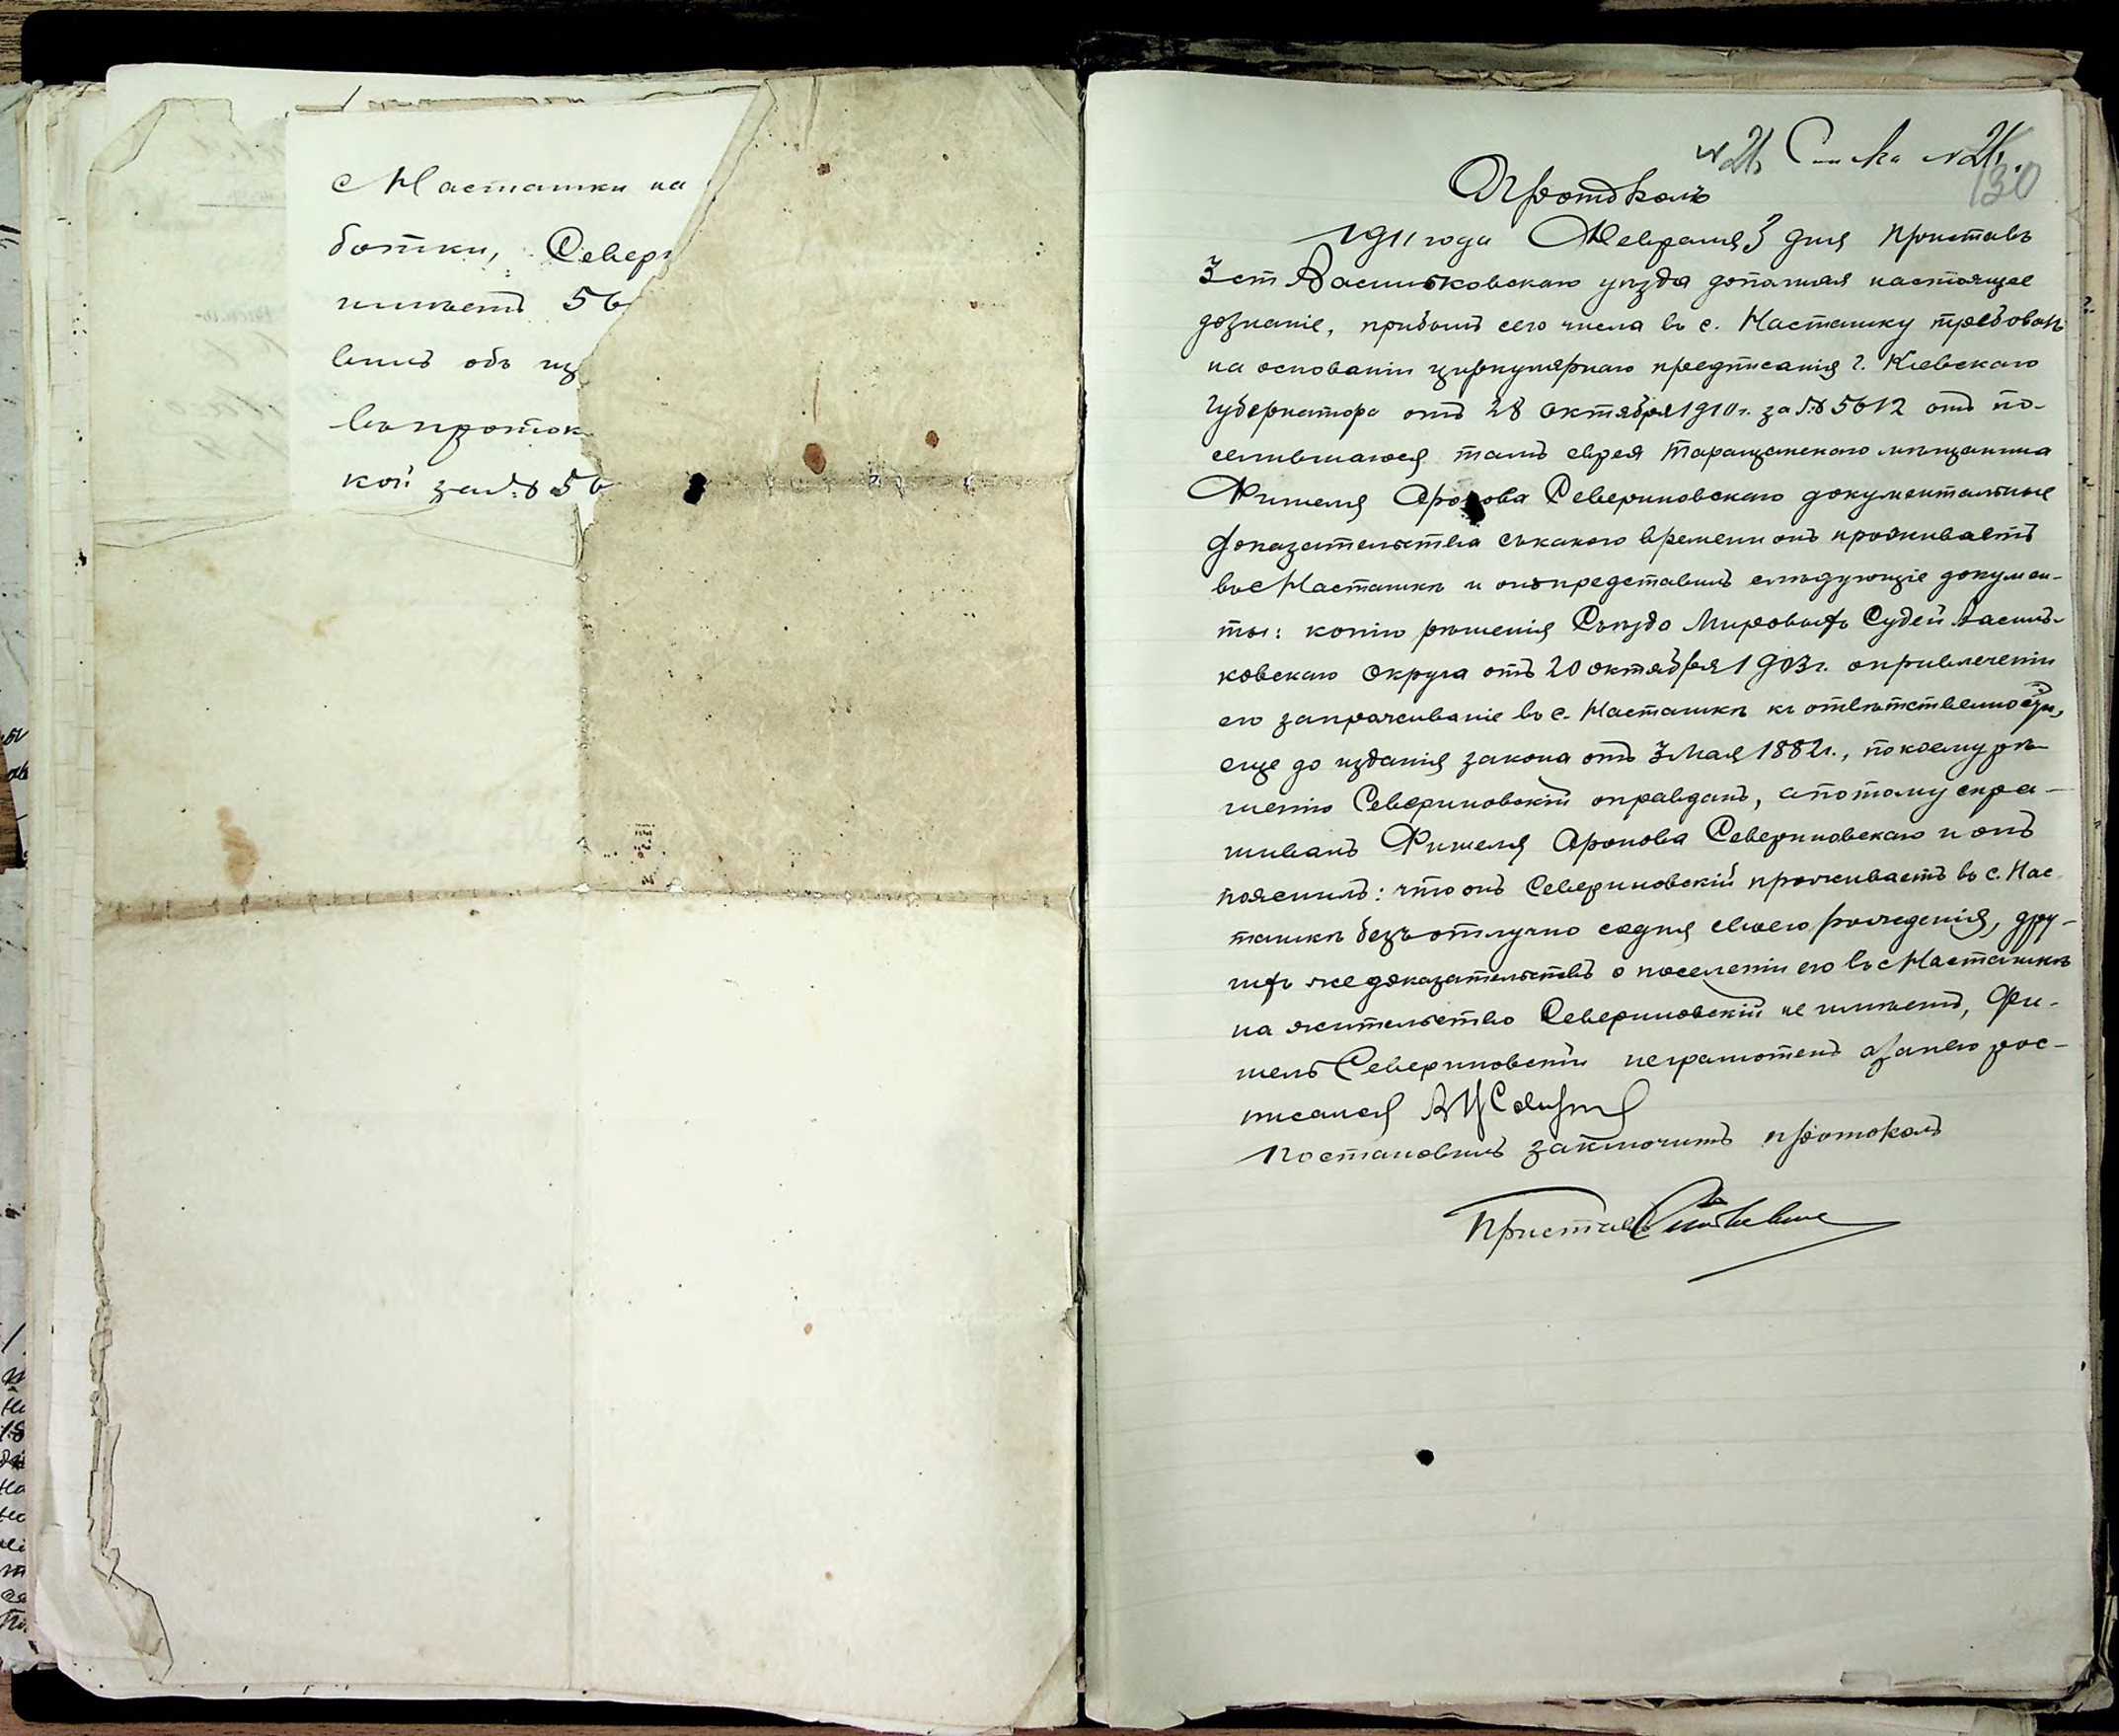 с Насташки на
ботки, Севери
имѣетъ 56
вилъ объ из
въ проток
кой за № 56
№ 21 Списка № 21.
130
Протоколъ
1911 года Февраля 3 дня Приставъ
3 ст Васильковскаго уѣзда дополняя настоящее
дознаніе, прибылъ сего числа въ с. Насташку требовалъ
на основаніи циркулярнаго предписанія г. Кіевскаго
Губернатора отъ 28 октября 1910 г. за № 5612 отъ по-
селившагося тамъ еврея Таращанскаго мѣщанина
Фишеля Аронова Севериновскаго документальные
доказательства съ какого времени онъ проживаетъ
въ с Насташкѣ и онъ представилъ слѣдующіе докумен-
ты: копію рѣшенія Съѣзда Мировыхъ Судей Василь-
ковскаго Округа отъ 20 октября 1903 г. о привлеченіи
его за проживаніе въ с. Насташкѣ къ отвѣтственности,
еще до изданія закона отъ 3 Мая 1882 г., по коему рѣ-
шенію Севериновскій оправданъ, а потому спра-
шивалъ Фишеля Аронова Севериновскаго и онъ
пояснилъ: что онъ Севериновскій проживаетъ въ с. Нас
ташкѣ безъотлучно со дня своего рожденія, дру-
гихъ же доказательствъ о поселеніи его въ с Насташкѣ
на жительство Севериновскій не имѣетъ, Фи-
шель Севериновскій неграмотенъ а за него рос-
писался
Постановилъ заключить протоколъ
Приставъ